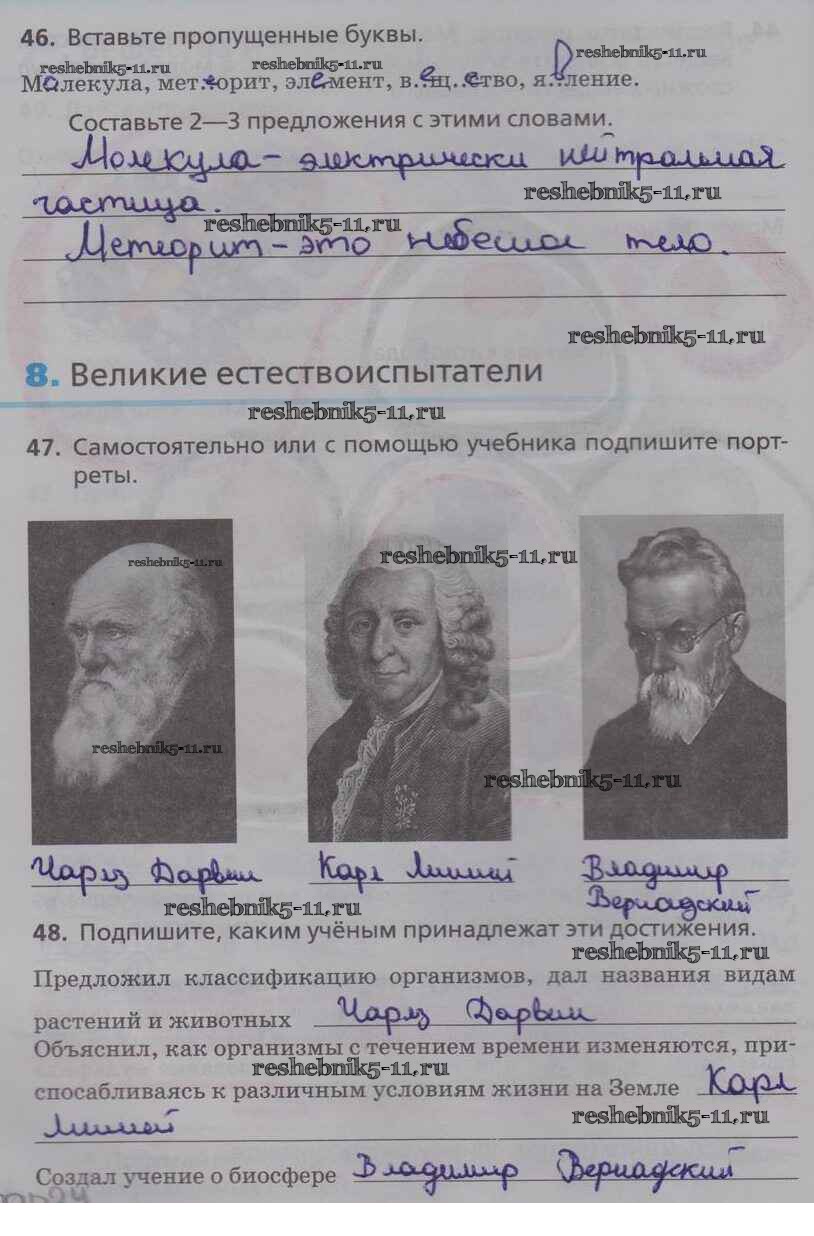 46. Вставьте пропущенные буквы.
reshebnik5-11.ru reshebnik5-11.ru reshebnik5-11.ru
Молекула, мет.еорит, элемент, в.ещ..ество, я.в.ление.
Составьте 2—3 предложения с этими словами.
Молекула – электрически нейтральная
reshebnik5-11.ru
частица.
reshebnik5-11.ru
Метеорит – это небесное тело.
reshebnik5-11.ru
8. Великие естествоиспытатели
reshebnik5-11.ru
47. Самостоятельно или с помощью учебника подпишите порт-
реты.
reshebnik5-11.ru
reshebnik5-11.ru
reshebnik5-11.ru
reshebnik5-11.ru
Чарлз Дарвин Карл Линней Владимир
Вернадский
reshebnik5-11.ru
48. Подпишите, каким учёным принадлежат эти достижения.
reshebnik5-11.ru
Предложил классификацию организмов, дал названия видам
растений и животных Чарлз Дарвин
Объяснил, как организмы с течением времени изменяются, при-
reshebnik5-11.ru
спосабливаясь к различным условиям жизни на Земле Карл
reshebnik5-11.ru
Линней
Создал учение о биосфере Владимир Вернадский